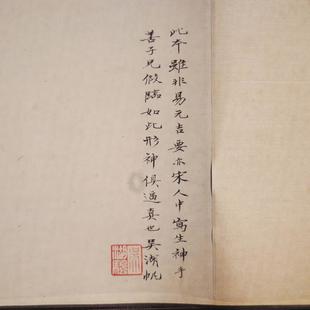 此本雖非易元吉要亦宋人中寫生神手
善子兄假臨如此形神俱逼真也吳湖帆